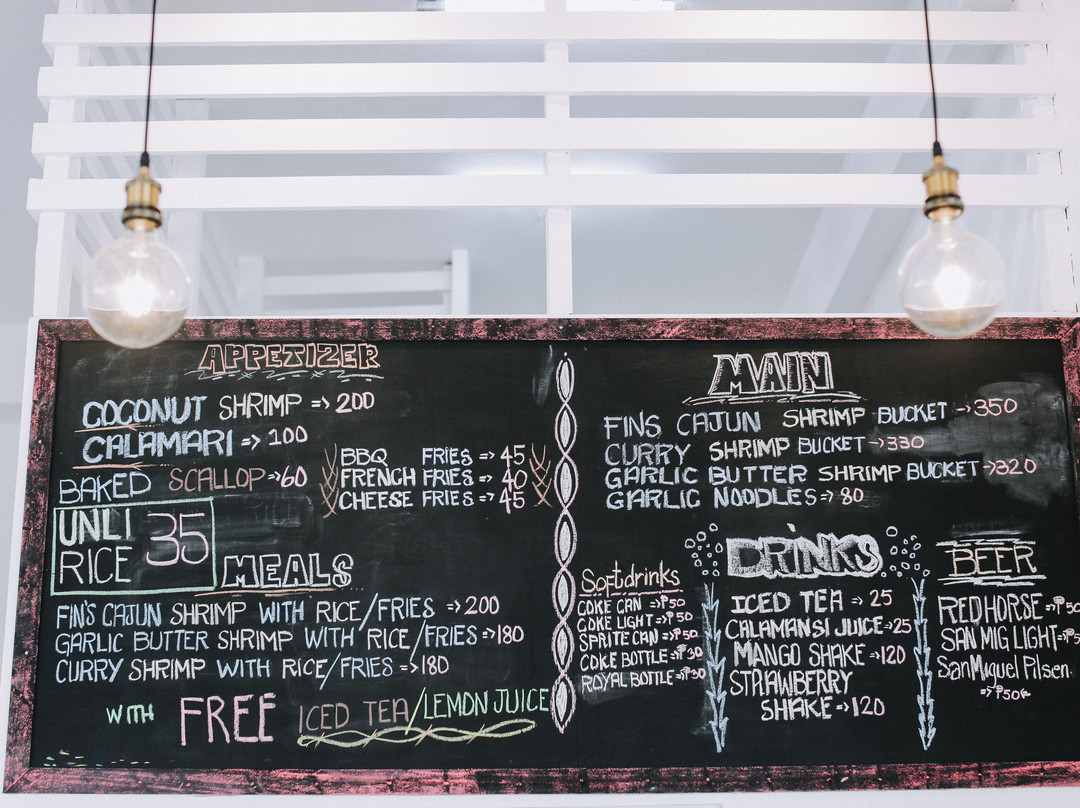 APPETIZER
COCONUT SHRIMP => 200
CALAMARI => 100
BAKED SCALLOP => 60
BBQ FRIES => 45
FRENCH FRIES => 40
CHEESE FRIES => 45
UNLI RICE 35
MEALS
FIN'S CAJUN SHRIMP WITH RICE/FRIES => 200
GARLIC BUTTER SHRIMP WITH RICE/FRIES => 180
CURRY SHRIMP WITH RICE/FRIES => 180
WITH FREE ICED TEA/LEMON JUICE
MAIN
FINS CAJUN SHRIMP BUCKET → 350
CURRY SHRIMP BUCKET → 330
GARLIC BUTTER SHRIMP BUCKET → 320
GARLIC NOODLES => 80
Softdrinks
COKE CAN => ₱50
COKE LIGHT => ₱50
SPRITE CAN => ₱50
COKE BOTTLE => ₱30
ROYAL BOTTLE => ₱30
DRINKS
ICED TEA => 25
CALAMANSI JUICE => 25
MANGO SHAKE => 120
STRAWBERRY
SHAKE => 120
BEER
REDHORSE => ₱50
SAN MIG LIGHT => ₱5
San Miguel Pilsen.
=> ₱50